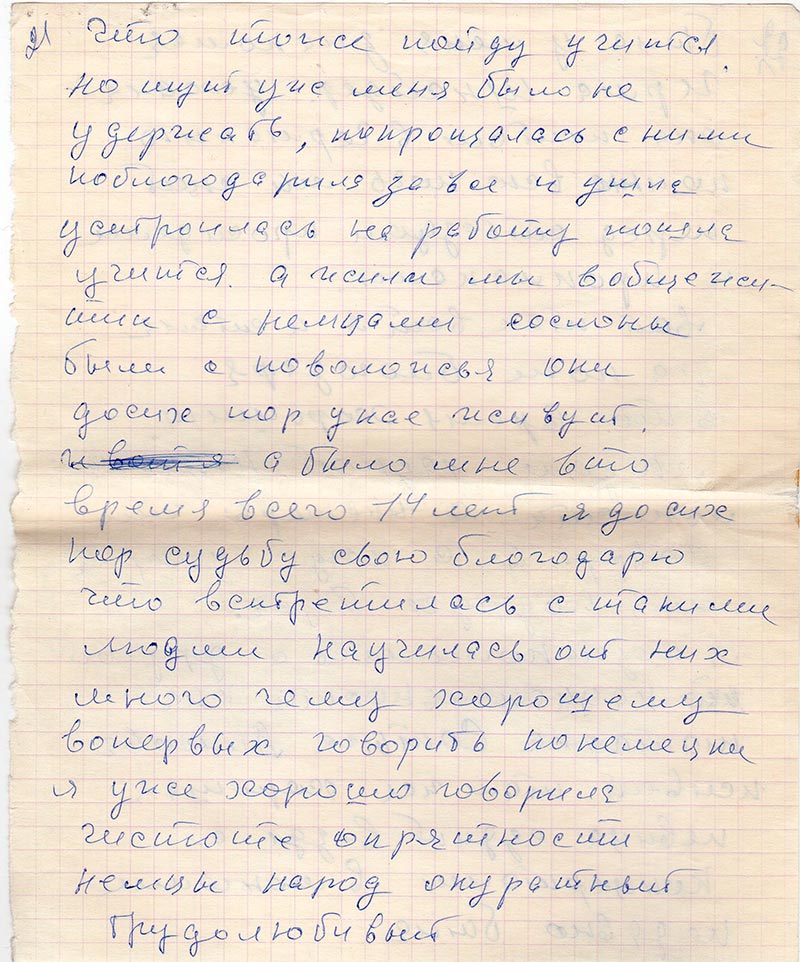 2) Что тоже пойду учится.
но тут уже меня было не
удержать, попрощалась с ними
поблогодарила за все и ушла
устроилась на работу пошла
учится. а жили мы вобщежи-
тии с немцами сосланы
были с поволожья они
досих пор унас живут.
и а было мне вто
время всего 14 лет я до сих
пор судьбу свою благодарю
что встретилась с такими
людми научилась от них
много чему хорошему
вопервых говорить понемецки
я уже хорошо говорила
чистоте опрятности
немцы народ окуратный
трудолюбивый